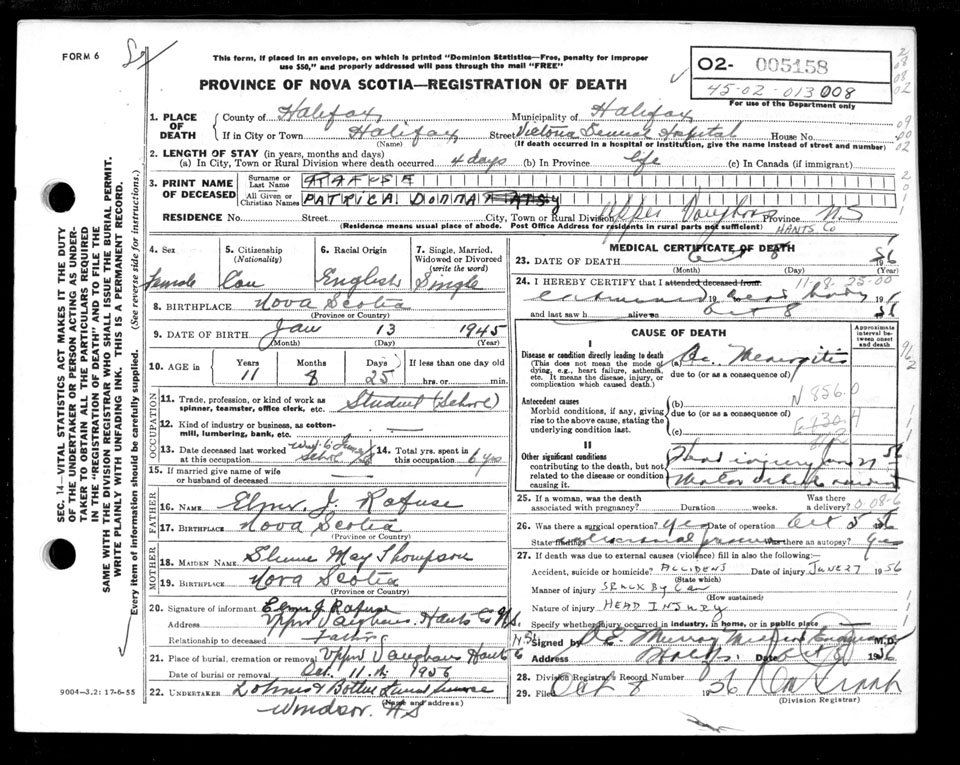 FORM 6
This form, if placed in an envelope, on which is printed "Dominion Statistics—Free, penalty for improper
use $50," and properly addressed will pass through the mail "FREE"
PROVINCE OF NOVA SCOTIA—REGISTRATION OF DEATH
O2- 005158
45-02-013008
For use of the Department only
1. PLACE OF DEATH
County of Halifax Municipality of Halifax
If in City or Town Halifax Street Victoria General Hospital House No.
(Name) (If death occurred in a hospital or institution, give the name instead of street and number)
2. LENGTH OF STAY (in years, months and days)
(a) In City, Town or Rural Division where death occurred 4 days (b) In Province life (c) In Canada (if immigrant)
3. PRINT NAME OF DECEASED
Surname or Last Name RAFUSE
All Given or Christian Names PATRICA DONNA
RESIDENCE No. Street City, Town or Rural Division Upper Vaughan Province N.S
(Residence means usual place of abode. Post Office Address for residents in rural parts not sufficient) HANTS Co
4. Sex female
5. Citizenship (Nationality) Can
6. Racial Origin English
7. Single, Married, Widowed or Divorced (write the word) Single
8. BIRTHPLACE Nova Scotia
(Province or Country)
9. DATE OF BIRTH Jan 13 1945
(Month) (Day) (Year)
10. AGE in Years 11 Months 8 Days 25 If less than one day old
hrs. or min.
OCCUPATION
11. Trade, profession, or kind of work as
spinner, teamster, office clerk, etc. Student (School)
12. Kind of industry or business, as cotton-
mill, lumbering, bank, etc.
13. Date deceased last worked
at this occupation
14. Total yrs. spent in
this occupation 6 yrs
15. If married give name of wife
or husband of deceased
FATHER
16. NAME Elmer J. Rafuse
17. BIRTHPLACE Nova Scotia
(Province or Country)
MOTHER
18. MAIDEN NAME May Thompson
19. BIRTHPLACE Nova Scotia
(Province or Country)
20. Signature of informant Elmer J Rafuse
Address Upper Vaughan, Hants Co N.S.
Relationship to deceased Father
21. Place of burial, cremation or removal Upper Vaughan Hants
Date of burial or removal Oct. 11 1956
22. UNDERTAKER
(Name and address)
Windsor. N S
9004—3.2: 17-6-55
MEDICAL CERTIFICATE OF DEATH
23. DATE OF DEATH Oct 8 1956
(Month) (Day) (Year)
24. I HEREBY CERTIFY that I attended deceased from: 11-8-25-00
examined dead body
and last saw h alive on Oct 8
CAUSE OF DEATH
Approximate interval between onset and death
I
Disease or condition directly leading to death
(This does not mean the mode of
dying, e.g., heart failure, asthenia,
etc. It means the disease, injury, or
complication which caused death.)
(a) Ac. Meningitis
due to (or as a consequence of)
Antecedent causes
Morbid conditions, if any, giving
rise to the above cause, stating the
underlying condition last.
(b) N 856.0
due to (or as a consequence of)
(c)
II
Other significant conditions
contributing to the death, but not
related to the disease or condition
causing it.
Head injury June 27
Motor vehicle
25. If a woman, was the death
associated with pregnancy? Duration weeks. Was there a delivery? 0-08-6
26. Was there a surgical operation? Yes Date of operation Oct 5 1956
State findings Was there an autopsy? Yes
27. If death was due to external causes (violence) fill in also the following:—
Accident, suicide or homicide? ACCIDENS Date of injury JUNE 27 1956
(State which)
Manner of injury SRACK BY CAR
(How sustained)
Nature of injury HEAD INJURY
Specify whether injury occurred in industry, in home, or in public place
Signed by Murray M.D.
Address Date Oct 8 1956
28. Division Registrar's Record Number
29. Filed Oct 8 1956
(Division Registrar)
SEC. 14—VITAL STATISTICS ACT MAKES IT THE DUTY
OF THE UNDERTAKER OR PERSON ACTING AS UNDER-
TAKER TO OBTAIN ALL THE PARTICULARS REQUIRED
IN THE "REGISTRATION OF DEATH" AND TO FILE THE
SAME WITH THE DIVISION REGISTRAR WHO SHALL ISSUE THE BURIAL PERMIT.
WRITE PLAINLY WITH UNFADING INK. THIS IS A PERMANENT RECORD.
Every item of information should be carefully supplied. (See reverse side for instructions.)